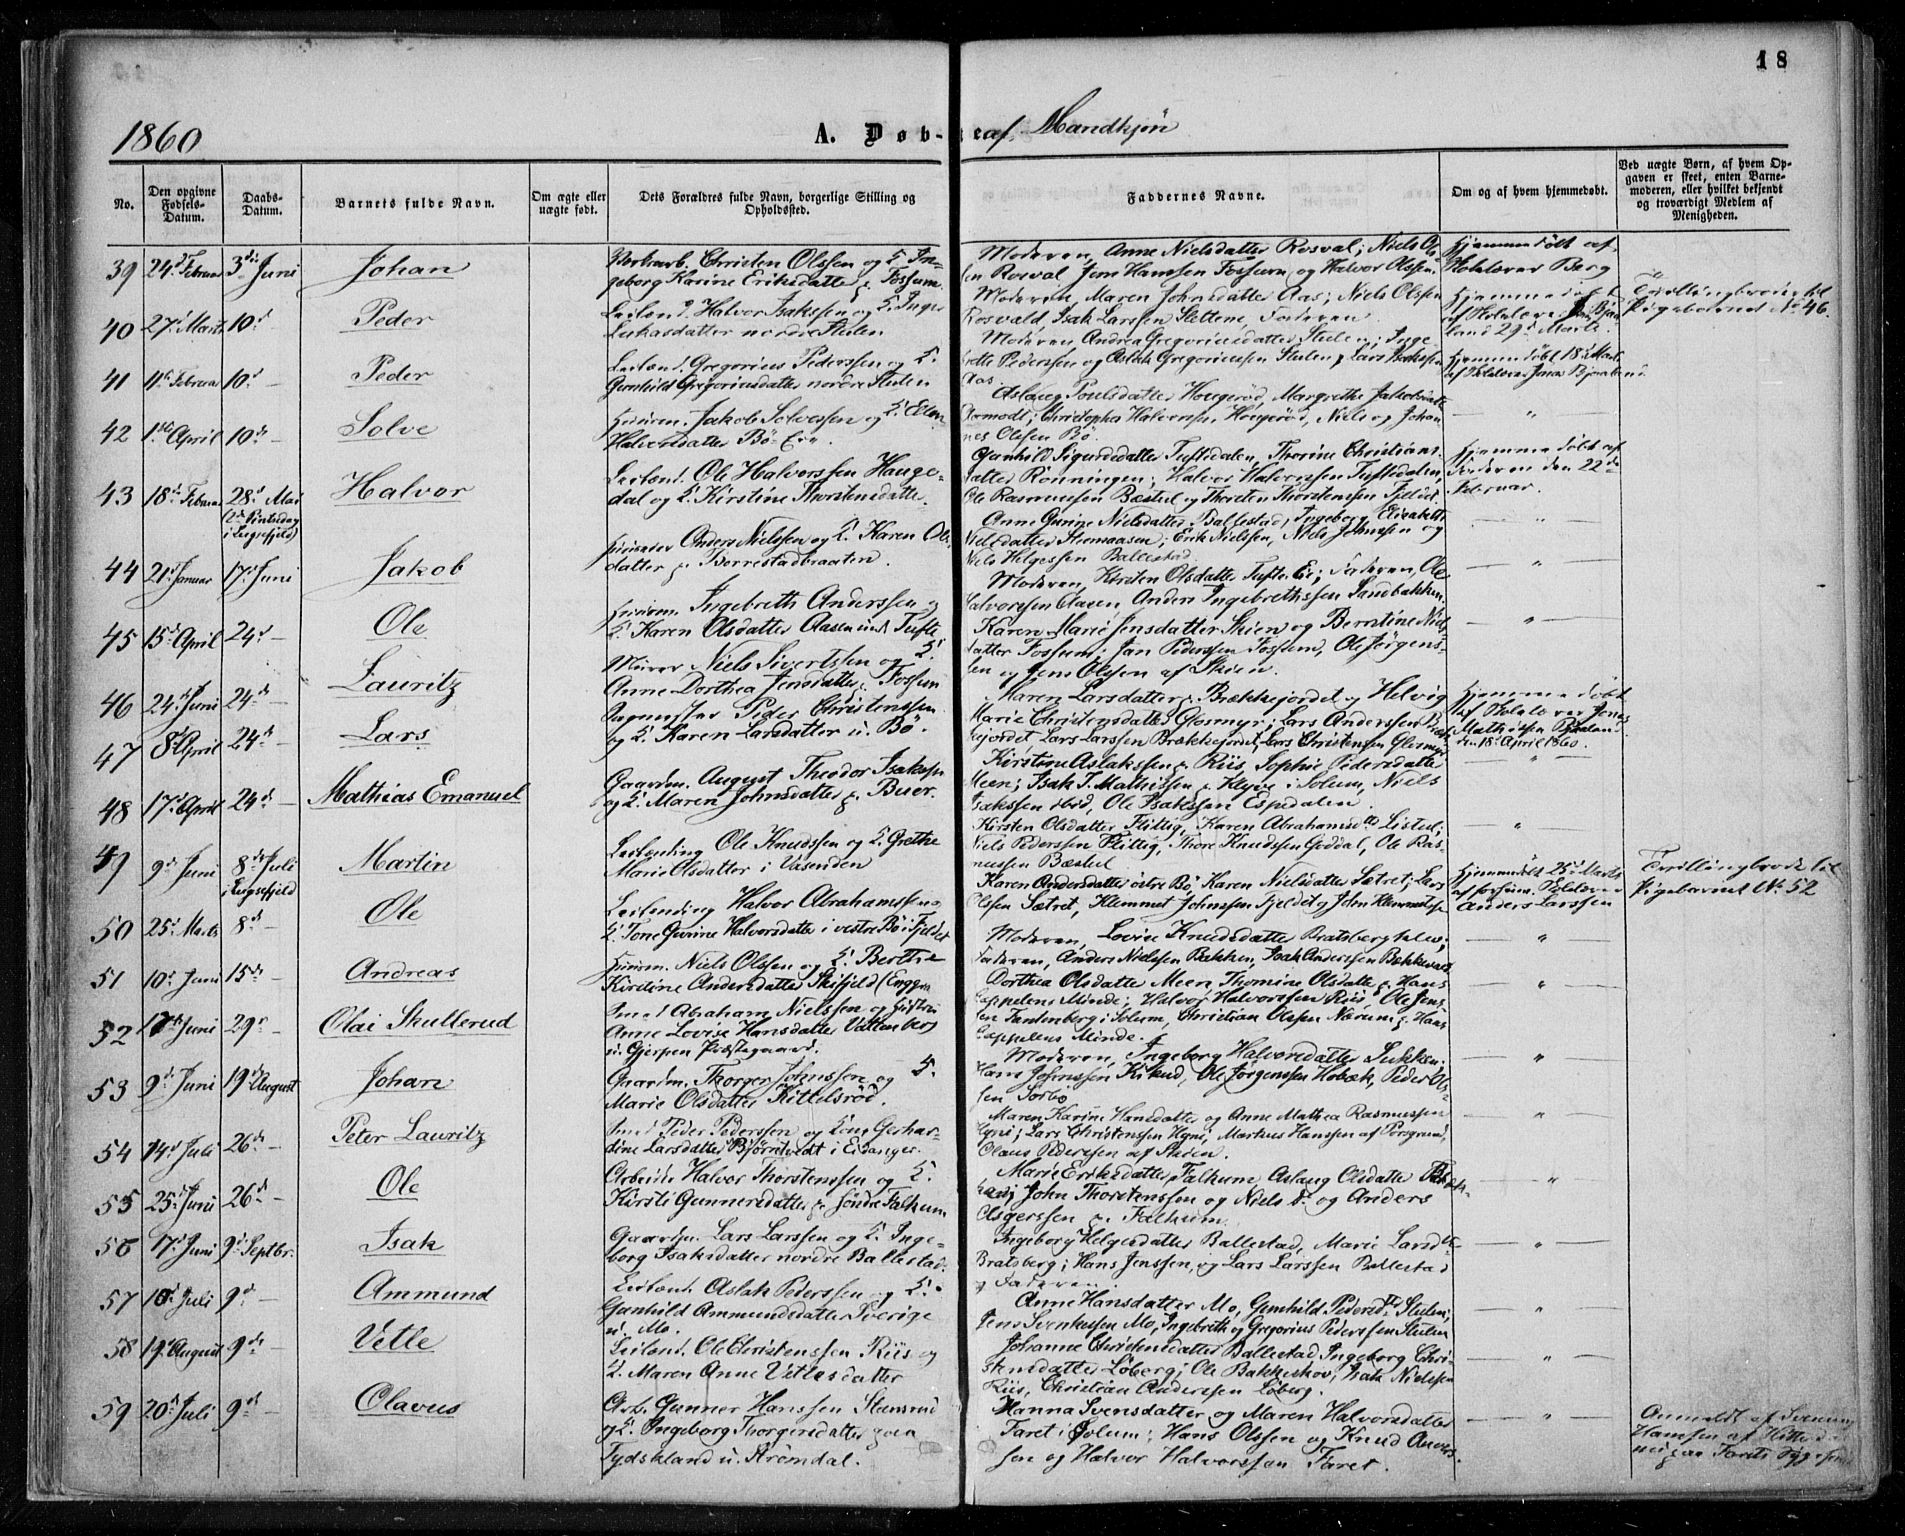 18
1860
A. Døb-
te af Mandkjøn
No.
Den opgivne Fødsels-Datum.
Daabs-Datum.
Barnets fulde Navn.
Om ægte eller uægte født.
Dets Forældres fulde Navn, borgerlige Stilling og Opholdssted.
Faddernes Navne.
Om og af hvem hjemmedøbt.
Ved uægte Børn, af hvem Opgaven er skeet, enten Barnemoderen, eller hvilket bekjendt og troværdigt Medlem af Menigheden.
39 24d Februar 3die Juni Johan
Christen Olssen og K. In-
geborg Karine Eriksdatter p. Fossum
Moderen, Anne Nielsdatter Rosval; Niels Ol-
sen Rosval, Jon Hansen Fossum og Halvor Olssen.
Hjemmedøbt af
Holelærer Berg
40 27d Marts 10d Peder
Leilænd. Halvor Isakssen og K. Inge
Lukasdatter nordre Stulen
Moderen, Maren Johnsdatter Aas; Niels Olssen
Rosvald, Isak Larssen Slettene, Faderen
Hjemmedøbt
29d Marts.
Tvillingbroder til
Pigebarnet No 46.
41 11te Februar 10d Peder
Leilænd. Gregorius Pederssen og K.
Gunhild Gregoriusdatter nordre Stulen
Moderen Andrea Gregoriusdatter Stulen; Inge-
breth Pederssen og Aslak Gregoriussen Stulen, Lars Isakssen
Aas.
Hjemmedøbt 18d Marts
af Holelærer Jonas Bjaaland
42 1ste April 10de Solve
Huusm. Jakob Solvessen og K. Ellen
Halvorsdatter Bö-Eie
Aslaug Poulsdatter Hougerød, Margrethe Jakobsdatter
Aamodt; Christopher Halvorssen Hougerød, Niels og Johan-
nes Olssen Bö.
43 18de Februar 28d Mai
(2d Pintsedag
i Luxefjeld)
Halvor
Leilænd. Ole Halvorssen Hauge-
dal og K. Kirstine Thorstensdatter
Gunhild Sigurdsdatter Tuftedalen, Thorine Christians-
datter Rönningen; Halvor Halvorssen Tuftedalen,
Ole Rasmussen Bæstul og Thorsten Thorstenssen Fjeldet.
Hjemmedøbt af
Faderen den 22de
Februar.
44 21d Januar 17d Juni Jakob
Anders Nielssen og K. Karen Ols-
datter p. Borrestadbraaten.
Anne Gurine Nielsdatter Ballestad, Ingeborg Elisabeth
Nielsdatter Stromaasen; Erik Nielssen, Niels Johnssen og
Niels Helgessen Ballestad
45 15d April 24d Ole
Huusm. Ingebreth Anderssen og
K. Karen Olsdatter Aasen und. Tufte
Moderen, Kirsten Olsdatter Tufte Eie; Faderen, Ole
Halvorssen Aasen, Anders Ingebrethssen Sandbakken
46 24d Juni 24de Lauritz
Murer Niels Sivertssen og K.
Anne Dorthea Jensdatter p. Fossum
Karen Marie Jensdatter Skien og Berntine Niels-
datter Fossum; Jan Pederssen Fossum, Ole Jörgens-
sen og Jens Olssen af Skien.
47 8d April 24d Lars
Peder Christenssen
og K. Karen Larsdatter u. Bö.
Maren Larsdatter p. Brækkejordet og Helvig
Marie Christensdatter Glosmyr; Lars Anderssen Bræk-
kejordet, Lars Larssen Brækkejordet, Lars Christenssen Glosmyr
Hjemmedøbt
af Holelærer Jonas
Mathissen Bjaaland
den 18d April 1860.
48 17d April 24d Mathias Emanuel
Gaardm. August Theodor Isakssen
og K. Maren Johnsdatter p. Buer.
Kirstine Aslakssen p. Riis, Sophie Pedersdatter
Meen; Isak T. Mathissen p. Klyve i Solum, Niels
Isakssen ibid, Ole Isakssen Espedalen.
49 9d Juni 8de Juli
i Luxefjeld
Martin
Leilending Ole Knudssen og K. Grethe
Marie Olsdatter i Vasenden
Kirsten Olsdatter Flittig, Karen Abrahamsdtr Listul;
Niels Pederssen Flittig, Thore Knudssen Goddal, Ole Ras-
mussen Bæstul
50 25d Marts 8d Ole
Leilending Halvor Abrahamssen og
K. Tone Gurine Halvorsdatter i vestre Bö i Fjeldet
Karen Andersdatter östre Bö, Karen Nielsdatter Sætret; Lars
Olssen Sætret, Klemmet Johnssen Fjeldet og John Klemmetssen
Hjemmedøbt 25d Marts
af forhen. Holelærer
Anders Larssen
Tvillingbroder til
Pigebarnet No 52
51 10d Juni 15de Andreas
Huusm. Niels Olssen og K. Berthe
Kirstine Andersdatter Skifjeld (Enggra
Moderen, Lovise Knudsdatter Bratsbergkleiv;
Faderen, Anders Nielssen Bakken, Isak Anderssen Bækkevold
52 17de Juni 29d Olai Skullerud
Smed Abraham Nielssen og Hustru
Anne Lovise Hansdatter Vattenberg
u. Gjerpen Præstegaard.
Dorthea Olsdatter Meen, Thomine Olsdatter p. Hans
Cappelens Minde; Halvor Halvorssen Riis, Ole Jens-
sen Tantenberg i Solum, Christian Olssen Nærum p. Hans
Cappelens Minde.
53 9d Juni 19d August Johan
Gaardm. Thorger Johnssen og K.
Marie Olsdatter Kittelsröd.
Moderen, Ingeborg Halvorsdatter Lukken;
Hans Johnssen Kiland, Ole Jörgenssen Hobæk, Peder Ols-
sen Sorbö
54 14d Juli 26de Peter Lauritz
Smed Peder Pederssen og Kone Gerhar-
dine Larsdatter Bjönntvedt i Eidanger.
Maren Karine Hansdatter og Anne Mathea Rasmussen
Hyni; Lars Christenssen Hyni, Markus Hanssen af Porsgrund,
Olaus Pederssen af Skien.
55 25d Juni 26d Ole
Arbeider Halvor Thorstenssen og K.
Kirsti Gunnersdatter p. söndre Falkum.
Marie Eriksdatter Falkum, Aslaug Olsdatter
John Thorstenssen og Niels d. og Anders
Asgerssen p. Falkum.
56 17d Juni 9d Septbr. Isak
Gaardm. Lars Larssen og K. Inge-
borg Isaksdatter nordre Ballestad.
Ingeborg Helgesdatter Ballestad, Marie Larsdtr
Bratsberg; Hans Jenssen, og Lars Larssen Ballestad
og Faderen.
57 10d Juli 9d Ammund
Leilænd. Aslak Pederssen og K.
Gunhild Ammundsdatter Sverige
u. Mo.
Anne Hansdatter Mo, Gunhild Pedersdtr Stulen;
Jens Svenkessen Mo, Ingebreth og Gregorius Pederssen Stulen
58 19d August 9de Vetle
Leilænd. Ole Christenssen Riis og
K. Maren Anne Vetlesdatter
Johanne Christensdatter Ballestad, Ingeborg Chri-
stensdatter Löberg; Ole Bakkeskov, Isak Nielssen
Riis, Christian Anderssen Löberg.
59 20d Juli 9d Olavus
Arb. Gunner Hanssen Stensrud
og K. Ingeborg Thorgersdatter
Tydskland u. Kromdal.
Hanna Svensdatter og Maren Halvorsdatter
Faret i Solum; Hans Olssen og Knud Anders-
sen og Halvor Halvorssen Faret.
Anmeldt af
Hanssen af